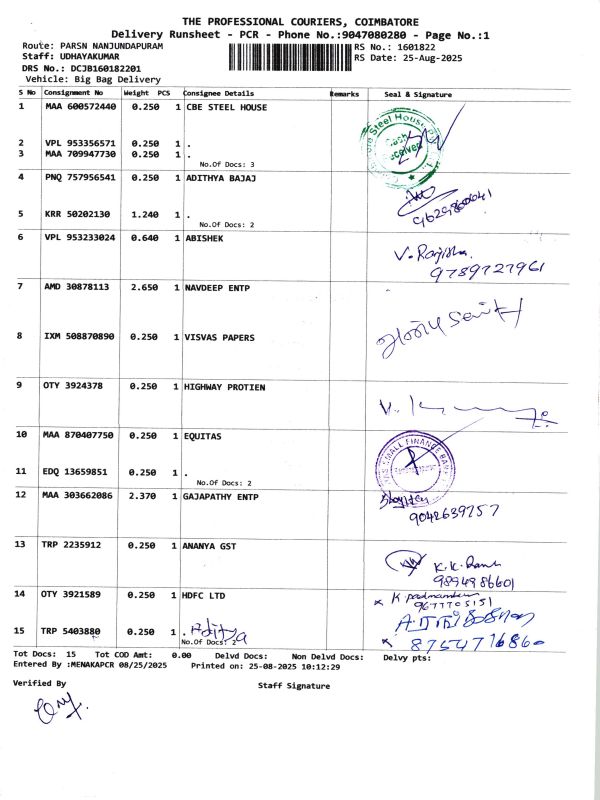 THE PROFESSIONAL COURIERS, COIMBATORE
Delivery Runsheet - PCR - Phone No.:9047080280 - Page No.:1
Route: PARSN NANJUNDAPURAM
RS No.: 1601822
Staff: UDHAYAKUMAR
RS Date: 25-Aug-2025
DRS No.: DCJB160182201
Vehicle: Big Bag Delivery
S No Consignment No Weight PCS Consignee Details Remarks Seal & Signature
1 MAA 600572440 0.250 1 CBE STEEL HOUSE
Steel House
Cash
2 VPL 953356571 0.250 1 .
3 MAA 709947730 0.250 1 .
No.Of Docs: 3
4 PNQ 757956541 0.250 1 ADITHYA BAJAJ
5 KRR 50202130 1.240 1 .
No.Of Docs: 2
6 VPL 953233024 0.640 1 ABISHEK
9789727961
7 AMD 30878113 2.650 1 NAVDEEP ENTP
8 IXM 508870890 0.250 1 VISVAS PAPERS
9 OTY 3924378 0.250 1 HIGHWAY PROTIEN
10 MAA 870407750 0.250 1 EQUITAS
SMALL FINANCE BANK
11 EDQ 13659851 0.250 1 .
No.Of Docs: 2
12 MAA 303662086 2.370 1 GAJAPATHY ENTP
9042639757
13 TRP 2235912 0.250 1 ANANYA GST
9894986601
14 OTY 3921589 0.250 1 HDFC LTD
9677705151
15 TRP 5403880 0.250 1 . Aditya
No.Of Docs: 2
Tot Docs: 15 Tot COD Amt: 0.00 Delvd Docs: Non Delvd Docs: Delvy pts:
Entered By :MENAKAPCR 08/25/2025 Printed on: 25-08-2025 10:12:29
Verified By
Staff Signature